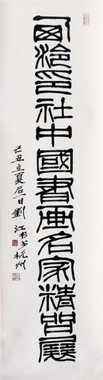 西泠印社中國書画名家精品展
己丑立夏后一日劉江書於杭州